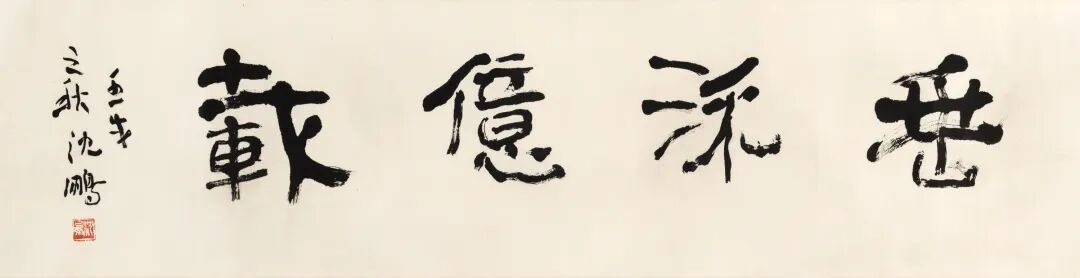 垂流億載
壬戌
之秋沈鵬